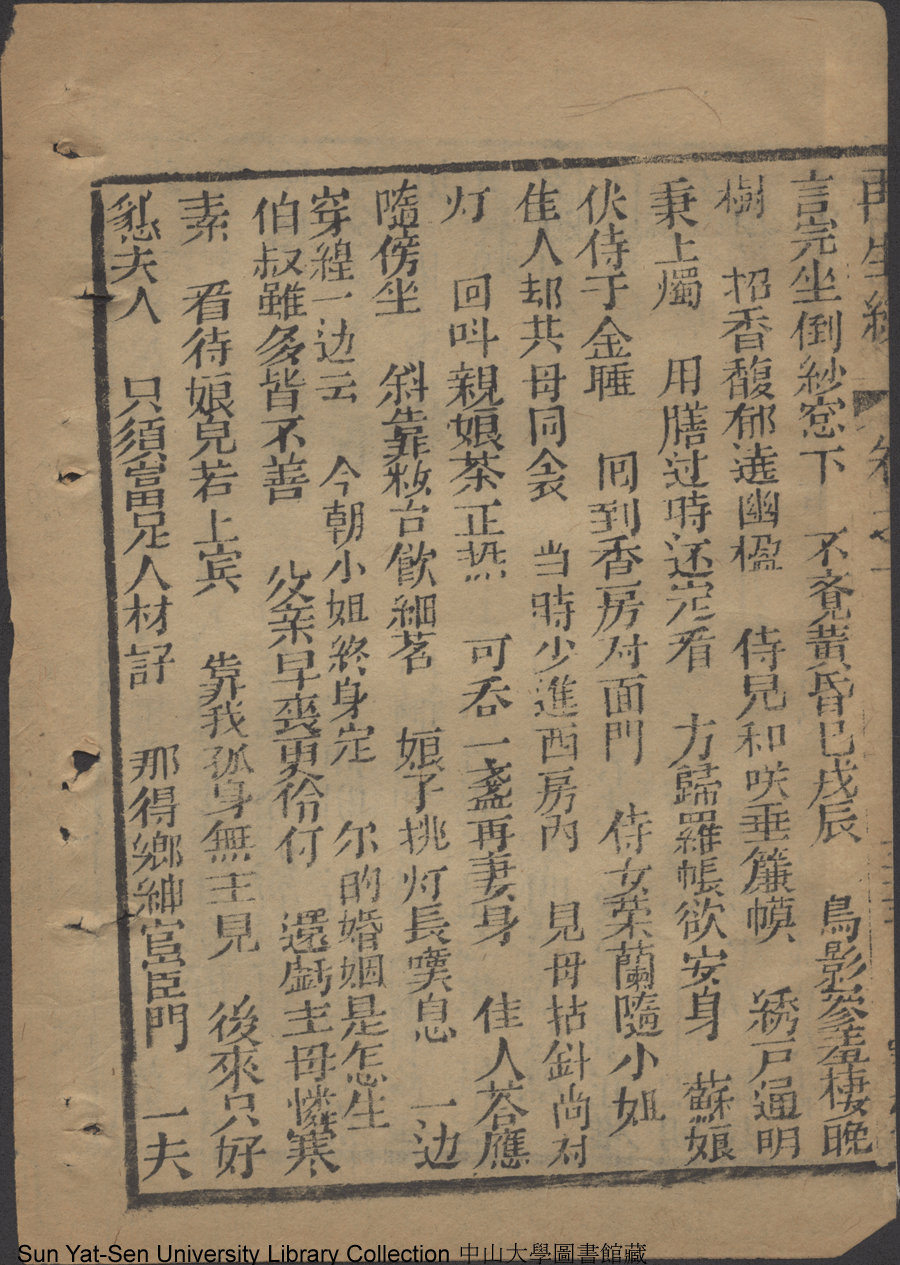 再生緣 卷之
言完坐倒紗窓下 不覔黄昏已戌辰 鳥影參差棲晚
樹 招香馥郁遶幽楹 侍兒和咲垂簾幙 綉戸通明
秉上燭 用膳过時还完看 方歸羅帳欲安身 蘇娘
伏侍千金睡 囘到香房对面門 侍女荣蘭隨小姐
佳人却共母同衾 当時少進西房内 見母拈針尚对
灯 回呌親娘茶正热 可吞一盞再妻身 佳人荅應
隨傍坐 斜靠粧台飲細茗 娘子挑灯長嘆息 一边
穿綫一边云 今朝小姐終身定 尔的婚姻是怎生
伯叔雖多皆不善 父亲早喪更伶仃 還虧主母憐寒
素 看待娘兒若上宾 靠我孤身無主見 後來只好
懇夫人 只須當足人材好 那得鄉紳宦臣門 一夫
Sun Yat-Sen University Library Collection 中山大學圖書館藏